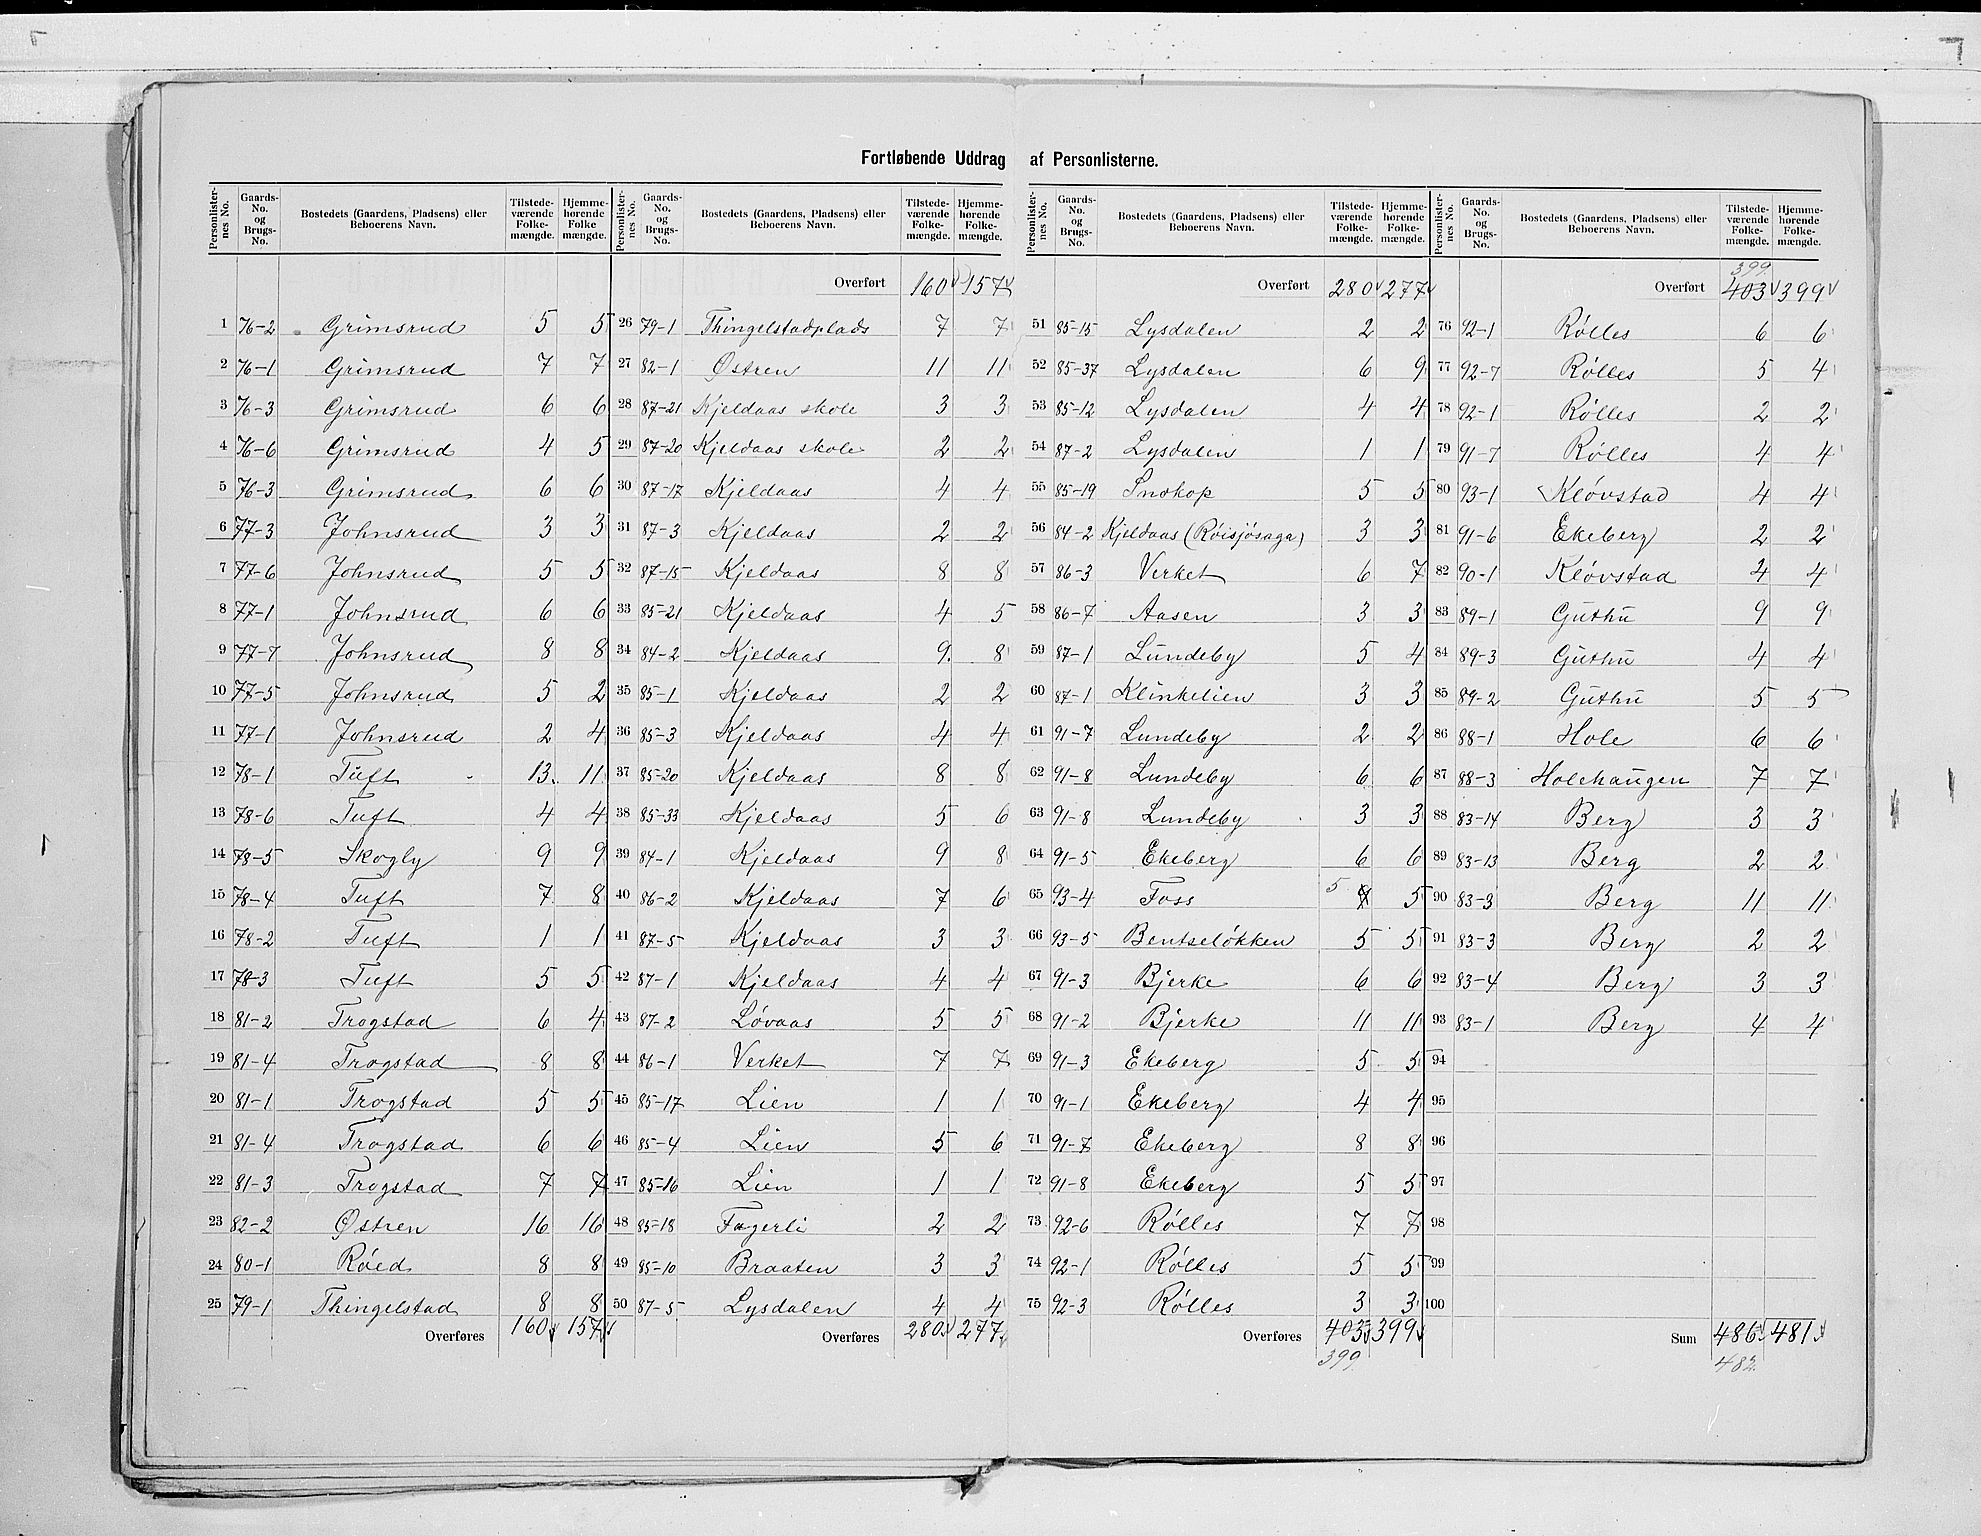 Fortløbende Uddrag af Personlisterne.
Personlisternes No. | Gaards-No. og Brugs-No. | Bostedets (Gaardens, Pladsens) eller Beboerens Navn. | Tilstedeværende Folkemængde. | Hjemmehørende Folkemængde.
1 76-2 Grimsrud 5 5
2 76-1 Grimsrud 7 7
3 76-3 Grimsrud 6 6
4 76-6 Grimsrud 4 5
5 76-3 Grimsrud 6 6
6 77-3 Johnsrud 3 3
7 77-6 Johnsrud 5 5
8 77-1 Johnsrud 6 6
9 77-7 Johnsrud 8 8
10 77-5 Johnsrud 5 2
11 77-1 Johnsrud 2 4
12 78-1 Tuft 13 11
13 78-6 Tuft 4 4
14 78-5 Skogly 9 9
15 78-4 Tuft 7 8
16 78-2 Tuft 1 1
17 78-3 Tuft 5 5
18 81-2 Trogstad 6 4
19 81-4 Trogstad 8 8
20 81-1 Trogstad 5 5
21 81-4 Trogstad 6 6
22 81-3 Trogstad 7 7
23 82-2 Østren 16 16
24 80-1 Røed 8 8
25 79-1 Thingelstad 8 8
Overføres 160 157
Personlisternes No. | Gaards-No. og Brugs-No. | Bostedets (Gaardens, Pladsens) eller Beboerens Navn. | Tilstedeværende Folkemængde. | Hjemmehørende Folkemængde.
Overført 160 157
26 79-1 Thingelstadplads 7 7
27 82-1 Østren 11 11
28 87-21 Kjeldaas skole 3 3
29 87-20 Kjeldaas skole 2 2
30 87-17 Kjeldaas 4 4
31 87-3 Kjeldaas 2 2
32 87-15 Kjeldaas 8 8
33 85-21 Kjeldaas 4 5
34 84-2 Kjeldaas 9. 8
35 85-1 Kjeldaas 2 2
36 85-3 Kjeldaas 4 4
37 85-20 Kjeldaas 8 8
38 85-33 Kjeldaas 5 6
39 84-1 Kjeldaas 9 8
40 86-2 Kjeldaas 7 6
41 87-5 Kjeldaas 3 3
42 87-1 Kjeldaas 4 4
43 87-2 Løvaas 5 5
44 86-1 Verket 7 7
45 85-17 Lien 1 1
46 85-4 Lien 5 6
47 85-16 Lien 1 1
48 85-18 Fagerli 2 2
49 85-10 Braaten 3 3
50 87-5 Lysdalen 4 4
Overføres 280 277
Personlisternes No. | Gaards-No. og Brugs-No. | Bostedets (Gaardens, Pladsens) eller Beboerens Navn. | Tilstedeværende Folkemængde. | Hjemmehørende Folkemængde.
Overført 280 277
51 85-15 Lysdalen 2 2
52 85-37 Lysdalen 6 9
53 85-12 Lysdalen 4 4
54 87-2 Lysdalen 1 1
55 85-19 Snokop 5 5
56 84-2 Kjeldaas (Røisjøsaga) 3 3
57 86-3 Verket 6 7
58 86-7 Aasen 3 3
59 87-1 Lundeby 5 4
60 87-1 Klinkelien 3 3
61 91-7 Lundeby 2 2
62 91-8 Lundeby 6 6
63 91-8 Lundeby 3 3
64 91-5 Ekeberg 6 6
65 93-4 Foss 5 5
66 93-5 Bentseløkken 5 5
67 91-3 Bjerke 6 6
68 91-2 Bjerke 11 11
69 91-3 Ekeberg 5 5
70 91-1 Ekeberg 4 4
71 91-7 Ekeberg 8 8
72 91-8 Ekeberg 5 5
73 92-6 Rølles 7 7
74 92-1 Rølles 5 5
75 92-3 Rølles 3 3
Overføres 403 399
399.
Personlisternes No. | Gaards-No. og Brugs-No. | Bostedets (Gaardens, Pladsens) eller Beboerens Navn. | Tilstedeværende Folkemængde. | Hjemmehørende Folkemængde.
399.
Overført 403 399
76 92-1 Rølles 6 6
77 92-7 Rølles 5 4
78 92-1 Rølles 2 2
79 91-7 Rølles 4 4
80 93-1 Kløvstad 4 4
81 91-6 Ekeberg 2 2
82 90-1 Kløvstad 4 4
83 89-1 Guthu 9 9
84 89-3 Guthu 4 4
85 89-2 Guthu 5 5
86 88-1 Hole 6 6
87 88-3 Holehaugen 7 7
88 83-14 Berg 3 3
89 83-13 Berg 2 2
90 83-3 Berg 11 11
91 83-3 Berg 2 2
92 83-4 Berg 3 3
93 83-1 Berg 4 4
94
95
96
97
98
99
100
Sum 486 481
482.